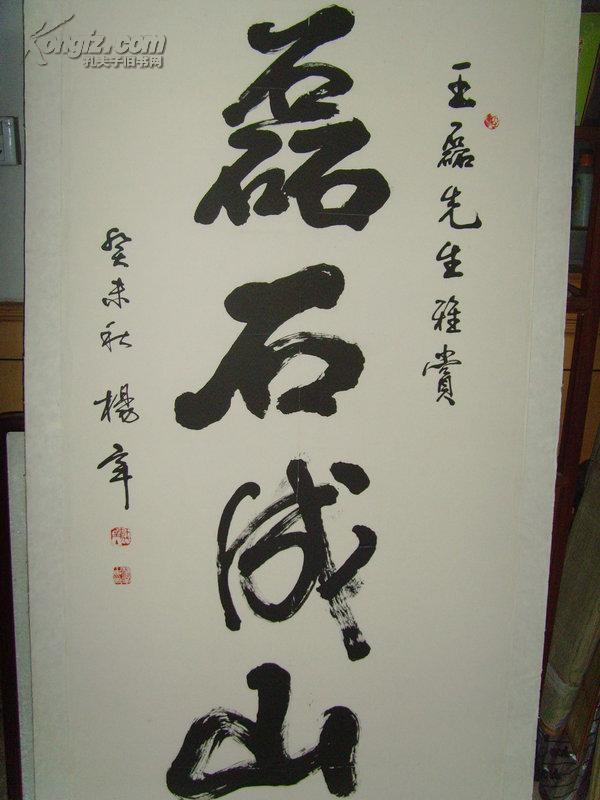 王磊先生雅赏
磊石成山
癸未秋 楊
Kongfz.com
孔夫子旧书网